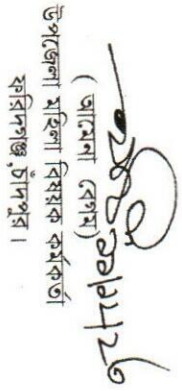 (আমেনা বেগম)
উপজেলা মহিলা বিষয়ক কর্মকর্তা
ফরিদগঞ্জ, চাঁদপুর।